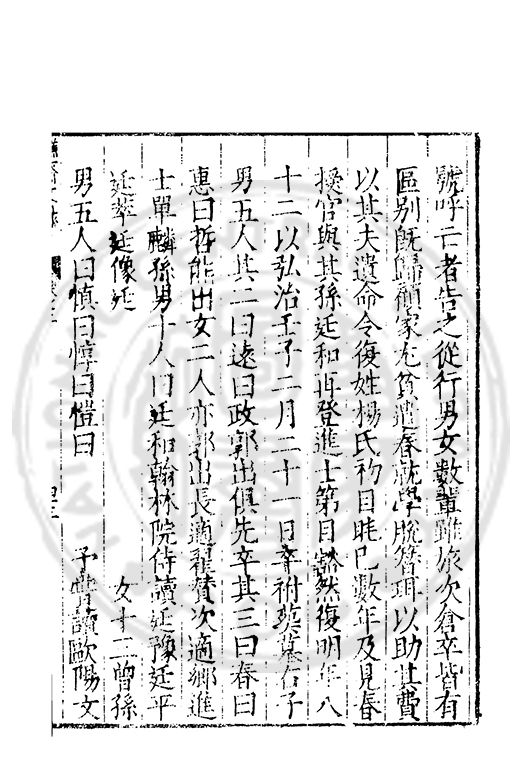 號呼亡者告之從行男女數輩雖旅次倉卒皆有
區别既歸顧家尤貧遣春就學脱簪珥以助其費
以其夫遺命令復姓楊氏初目眊已數年及見春
授官與其孫廷和再登進士第目豁然復明年八
十二以弘治壬子二月二十一日卒祔葬墓右子
男五人其二曰遠曰政郭出俱先卒其三曰春曰
惠曰哲能出女二人亦郭出長適翟賛次適鄉進
士單麟孫男十人曰廷和翰林院侍讀廷豫廷平
廷 廷像廷 女十二曾孫
男五人曰慎曰惇曰愷曰 予嘗讀歐陽文